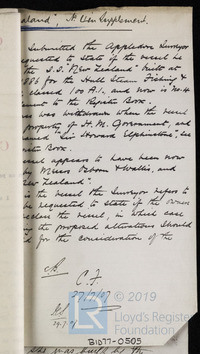 ealand", A New Supplement.
Submitted the Appledore Surveyor
requested to state if the vessel he
the S.S. "New Zealand" built at
1886 for the Hull Steam Fishing &
classed 100 A1, and now is No 4
ement to the Register Book.
was withdrawn when the vessel
property of H. M. Government, and
named "Sir Howard Elphinstone", see
ster Book.
vessel appears to have been now
by Messrs Osborn & Wallis, and
New Zealand".
is the vessel the Surveyor refers to
be requested to state if the owners
reclass the vessel, in which case
the proposed alterations should
d for the consideration of the
C.F.
27/7/07
© 2019
Lloyd's Register
Foundation
B1077-0505